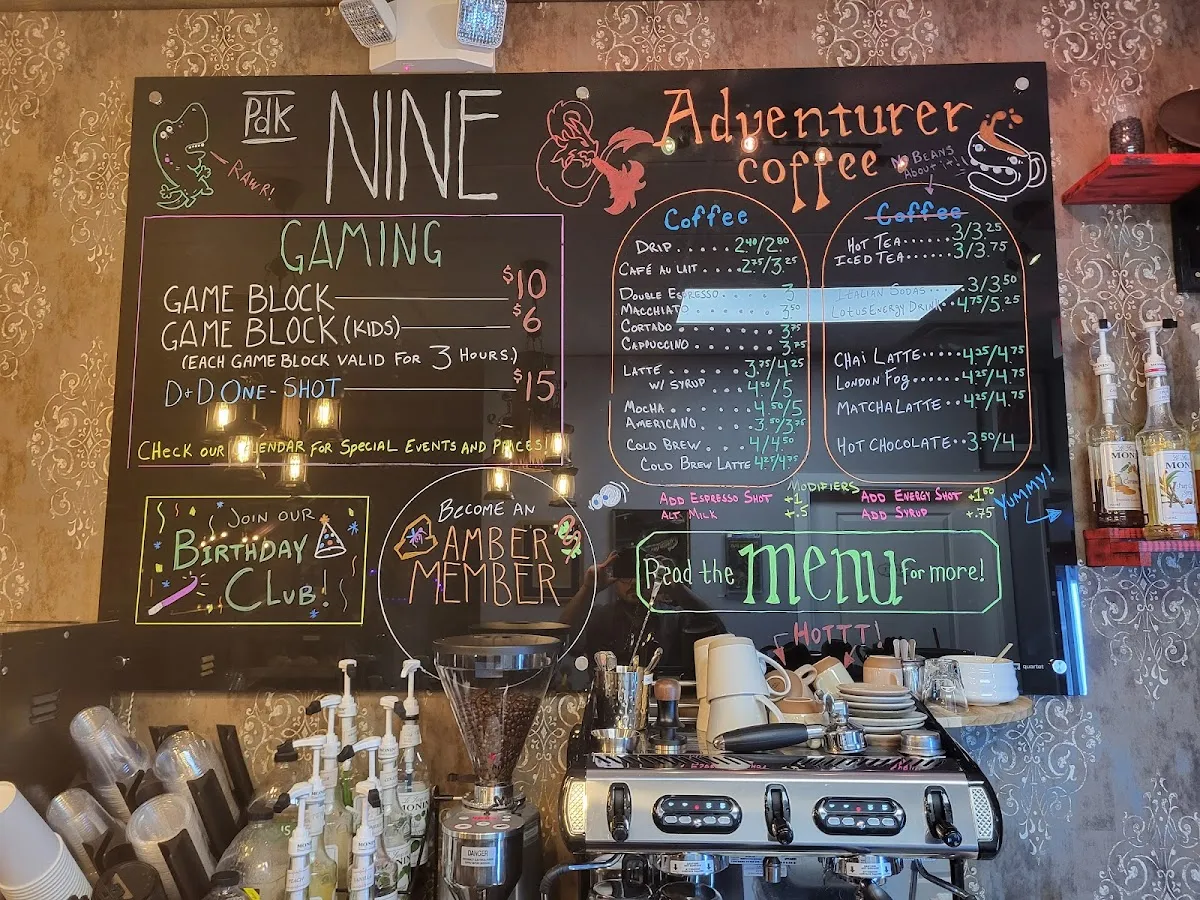 PdK NINE
RAWR!
GAMING
GAME BLOCK $10
GAME BLOCK (KIDS) $6
(EACH GAME BLOCK VALID FOR 3 HOURS.)
D+D ONE-SHOT $15
CHECK OUR CALENDAR FOR SPECIAL EVENTS AND PRICES!
JOIN OUR
BIRTHDAY
CLUB!
BECOME AN
AMBER
MEMBER
Adventurer
coffee
NO BEANS
ABOUT IT!
Coffee
DRIP...... 2.40/2.80
CAFÉ AU LAIT.... 2.75/3.25
DOUBLE ESPRESSO.... 3
MACCHIATO...... 3.50
CORTADO...... 3.75
CAPPUCCINO...... 3.75
LATTE...... 3.75/4.25
W/ SYRUP.... 4.50/5
MOCHA...... 4.50/5
AMERICANO.... 3.50/3.75
COLD BREW.... 4/4.50
COLD BREW LATTE 4.25/4.75
Coffee
HOT TEA...... 3/3.25
ICED TEA...... 3/3.75
ITALIAN SODAS.... 3/3.50
LOTUS ENERGY DRINK.. 4.75/5.25
CHAI LATTE..... 4.25/4.75
LONDON FOG...... 4.25/4.75
MATCHA LATTE.. 4.25/4.75
HOT CHOCOLATE.. 3.50/4
MODIFIERS
ADD ESPRESSO SHOT +1
ALT MILK +.5
ADD ENERGY SHOT +1.50
ADD SYRUP +.75
YUMMY!
Read the menu for more!
HOTTT!
quartet
MONIN
MONIN
DANGER